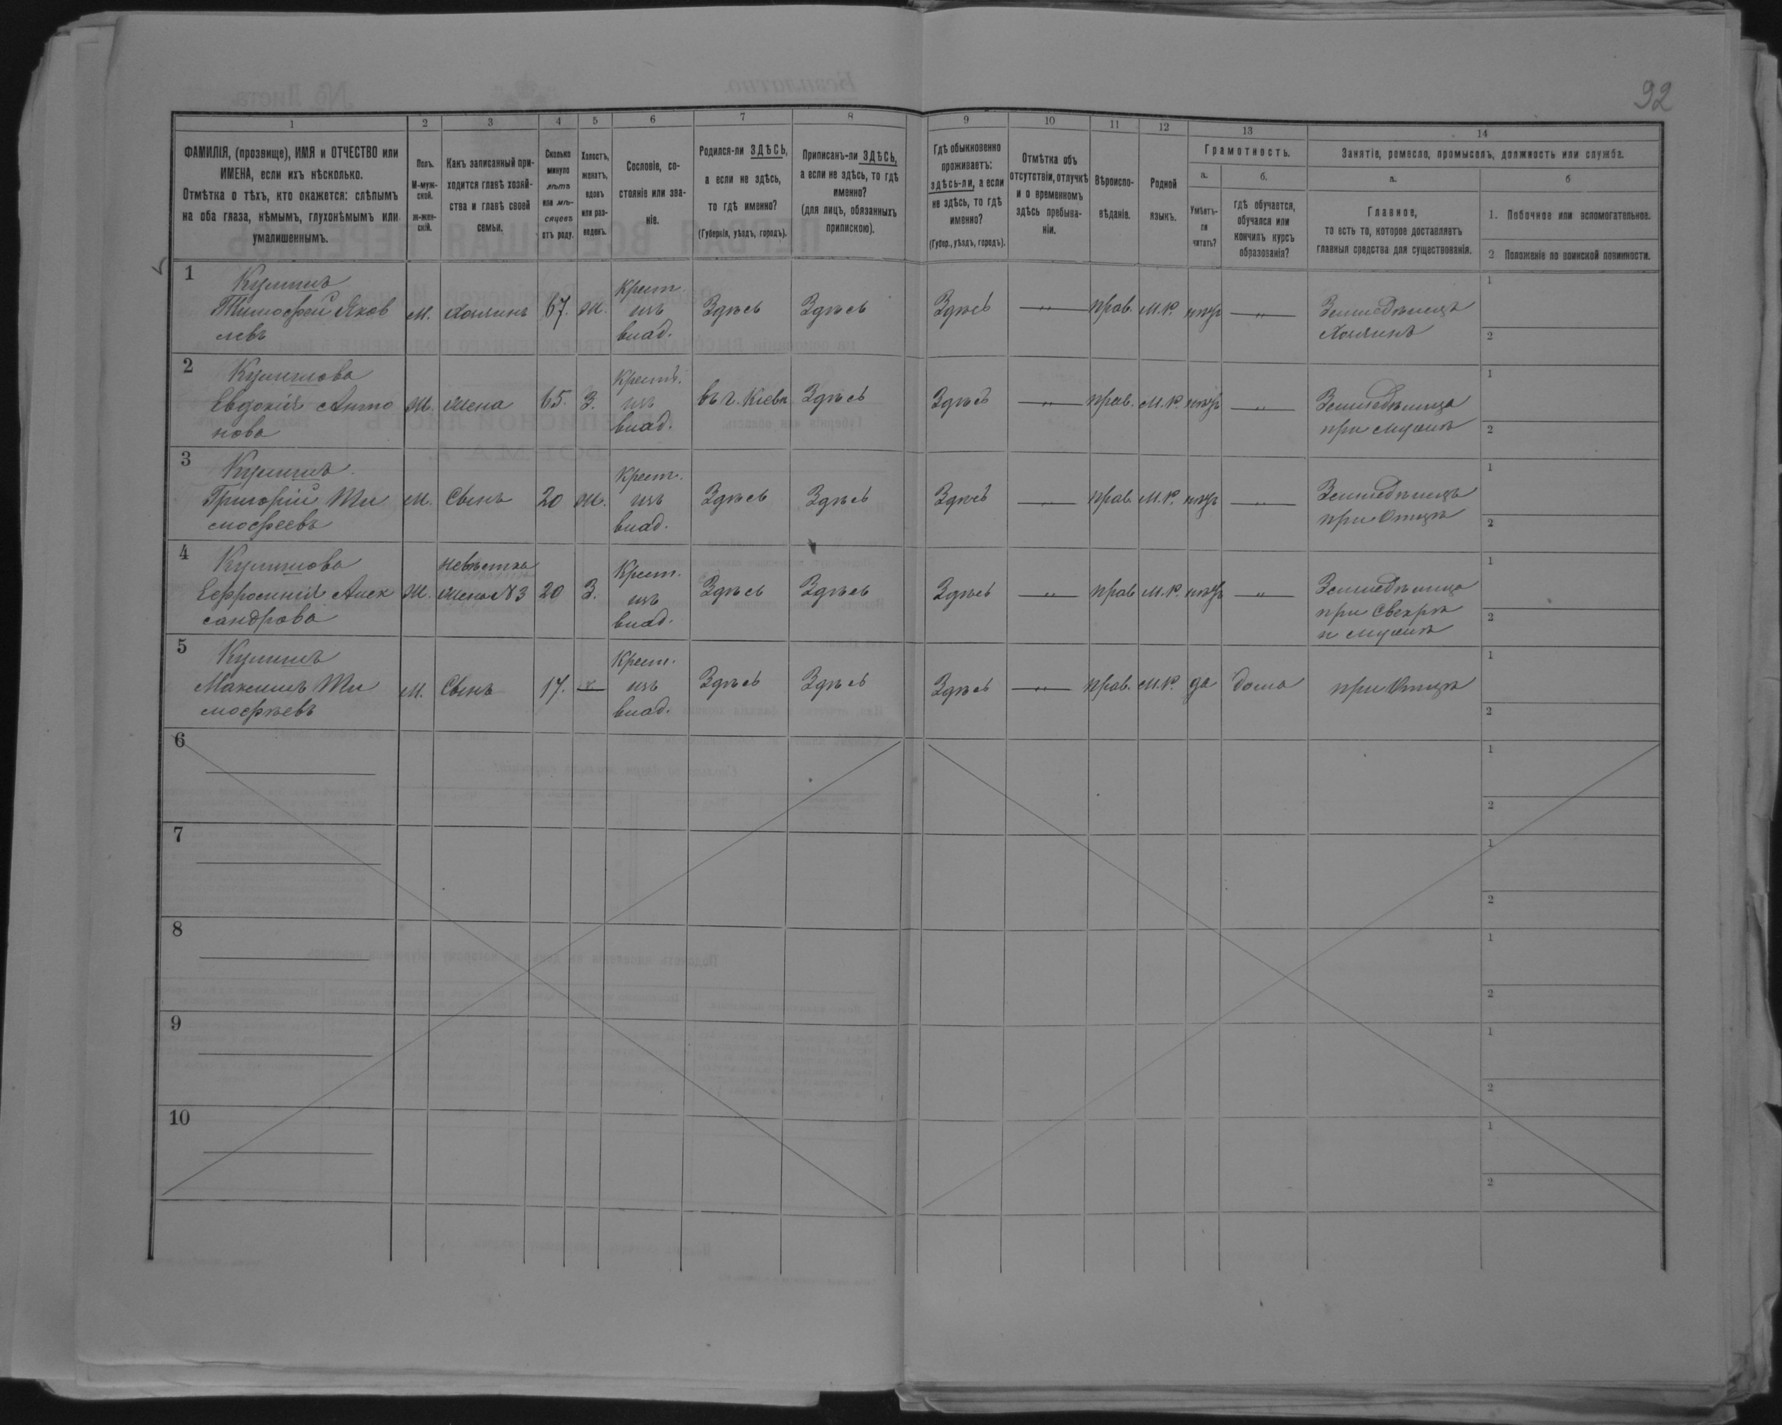 92
1 2 3 4 5 6 7 8 9 10 11 12 13 14
ФАМИЛІЯ, (прозвище), ИМЯ и ОТЧЕСТВО или
ИМЕНА, если ихъ нѣсколько.
Отмѣтка о тѣхъ, кто окажется: слѣпымъ
на оба глаза, нѣмымъ, глухонѣмымъ или
умалишеннымъ.
Полъ.
М-муж-
ской.
ж-жен-
скій.
Какъ записанный при-
ходится главѣ хозяй-
ства и главѣ своей
семьи.
Сколько
минуло
лѣтъ
или мѣ-
сяцевъ
отъ роду.
Холостъ,
женатъ,
вдовъ
или раз-
веденъ.
Сословіе, со-
стояніе или зва-
ніе.
Родился-ли ЗДѢСЬ,
а если не здѣсь,
то гдѣ именно?
(Губернія, уѣздъ, городъ).
Приписанъ-ли ЗДѢСЬ,
а если не здѣсь, то гдѣ
именно?
(для лицъ, обязанныхъ
припискою).
Гдѣ обыкновенно
проживаетъ:
здѣсь-ли, а если
не здѣсь, то гдѣ
именно?
(Губер., уѣздъ, городъ).
Отмѣтка объ
отсутствіи, отлучкѣ
и о временномъ
здѣсь пребыва-
ніи.
Вѣроиспо-
вѣданіе.
Родной
языкъ.
Грамотность.
а.
Умѣетъ-
ли
читать?
б.
гдѣ обучается,
обучался или
кончилъ курсъ
образованія?
Занятіе, ремесло, промыселъ, должность или служба.
а.
Главное,
то есть то, которое доставляетъ
главныя средства для существованія.
б
1. Побочное или вспомогательное.
2 Положеніе по воинской повинности.
1
Кулишъ
Тимофей Яков
левъ
м. хозяинъ 67. ж.
Крест
изъ
влад.
Здѣсь Здѣсь Здѣсь — " — прав. М.Р. нѣтъ — " —
Земледѣлецъ
Хозяинъ
1
2
2
Кулишова
Евдокія Анто
нова
ж. жена 65. З.
Крест.
изъ
влад.
въ г. Кіевѣ Здѣсь Здѣсь — " — прав. М.Р. нѣтъ — " —
Земледѣлица
при мужѣ
1
2
3
Кулишъ
Григорій Ти
мофеевъ
м. Сынъ 20 ж.
Крест.
изъ
влад.
Здѣсь Здѣсь Здѣсь — " — прав М.Р. нѣтъ — " —
Земледѣлецъ
при Отцѣ
1
2
4
Кулишова
Ефросинія Алек
сандрова
ж.
невѣстка
жена №3
20 З.
Крест.
изъ
влад.
Здѣсь Здѣсь Здѣсь — " — прав М.Р. нѣтъ — " —
Земледѣлица
при Свекрѣ
и мужѣ
1
2
5
Кулишъ
Максимъ Ти
мофѣевъ
м. Сынъ 17. х
Крест.
изъ
влад.
Здѣсь Здѣсь Здѣсь — " — прав. М.Р. да дома при Отцѣ
1
2
6
1
2
7
1
2
8
1
2
9
1
2
10
1
2